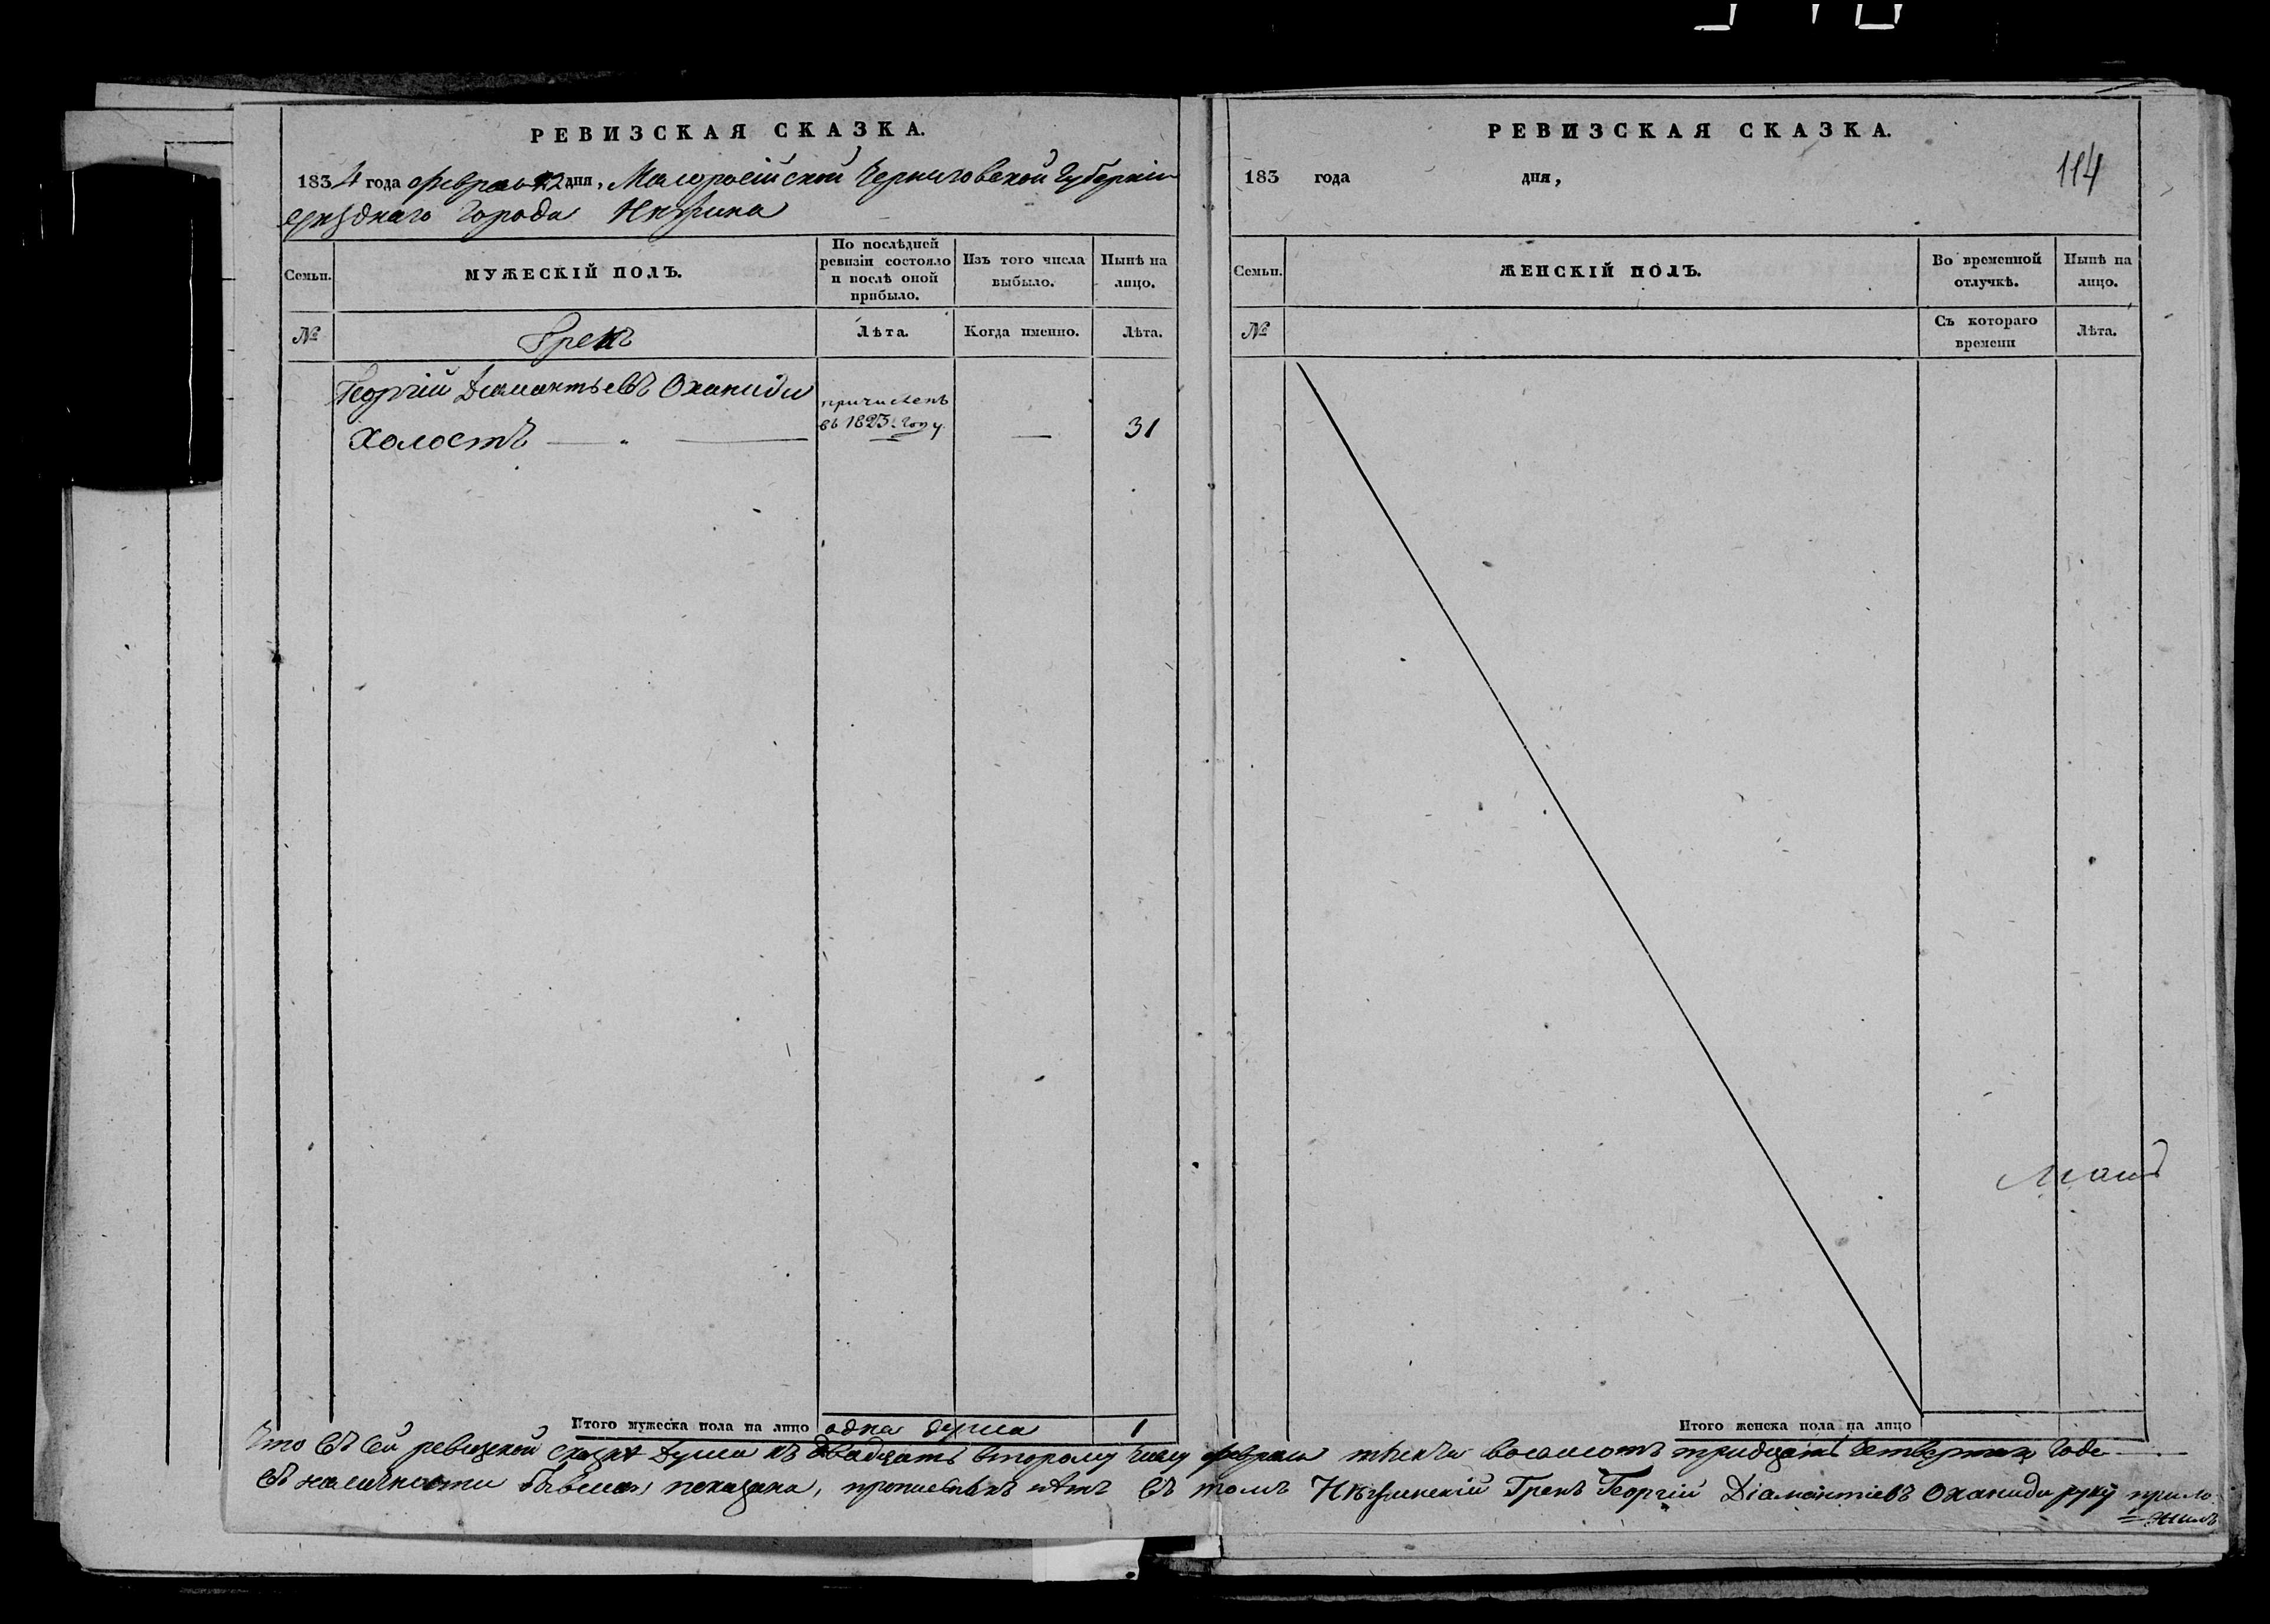 РЕВИЗСКАЯ СКАЗКА.
1834 года февраля 22 дня, Малоросiйской Черниговской Губернiи
уѣзднаго Города Нѣжина
Семьи.
МУЖЕСКIЙ ПОЛЪ.
По послѣдней ревизiи состояло и послѣ оной прибыло.
Изъ того числа выбыло.
Нынѣ на лицо.
№
Грекъ
Лѣта.
Когда именно.
Лѣта.
Георгiй Дiамантьевъ Оханиди
причисленъ
въ 1823 году
Холостъ — — 31
Итого мужеска пола на лицо одна душа 1
РЕВИЗСКАЯ СКАЗКА.
114
183 года дня,
Семьи.
ЖЕНСКIЙ ПОЛЪ.
Во временной отлучкѣ.
Нынѣ на лицо.
№
Съ котораго времени
Лѣта.
Итого женска пола на лицо
Что въ сей ревизской сказке душа къ двадцать второму числу февраля тысяча восемсотъ тридцать четвертаго года
въ наличности бывшая показана, прописныхъ нѣтъ въ томъ Нѣжинскiй Грекъ Георгiй Дiамантiевъ Оханиди руку прило=
=жилъ